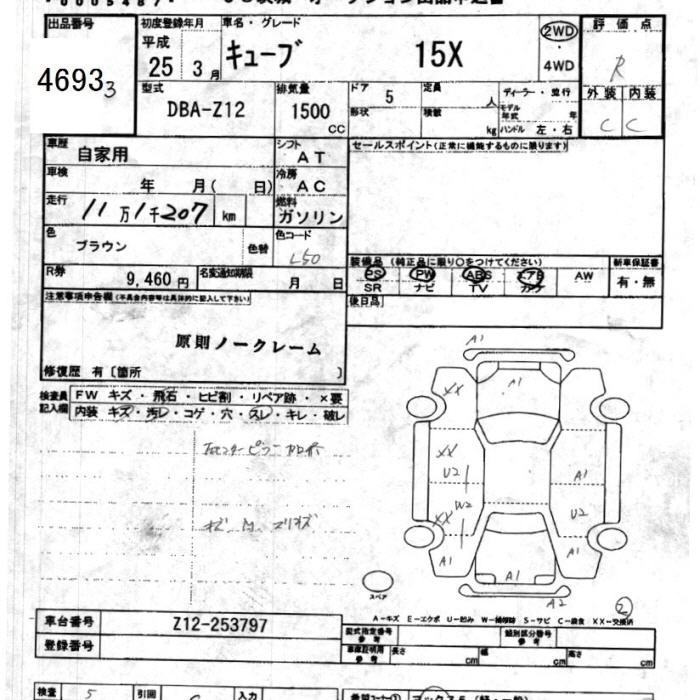 出品番号
初度登録年月
車名・グレード
評価点
平成
25 3月
キューブ
15X
2WD
4WD
R
46933
型式
DBA-Z12
排気量
1500
cc
ドア
5
形状
定員
人
積載
kg
ディーラー・並行
モデル年式
年
ハンドル 左・右
外装 内装
C C
車歴
自家用
シフト
AT
セールスポイント(正常に機能するものに限ります)
車検
年 月( 日)
冷房
AC
走行
11万1千207
km
燃料
ガソリン
色
ブラウン
色替
色コード
L50
装備品 (純正品に限り○をつけてください)
新車保証書
PS PW ABS エアB AW
SR ナビ TV カワ
有・無
R券
9,460円
名変通知期限
月 日
後日品
注意事項申告欄(不具合内容等は具体的に記入して下さい)
原則ノークレーム
修復歴 有〔箇所 〕
検査員記入欄
FW キズ・飛石・ヒビ割・リペア跡・×要
内装 キズ・汚レ・コゲ・穴・スレ・キレ・破レ
A1
A1
XX
XX
U2
A1
W2
U2
XX
A1
A1
A1
A2
スペア
2
A-キズ E-エクボ U-凹み W-補修跡 S-サビ C-腐食 XX-交換済
車台番号
Z12-253797
登録番号
型式指定番号
参考
類別区分番号
参考
車庫証明用
参考
長さ
cm
幅
cm
高さ
cm
検査
5
引回
入力